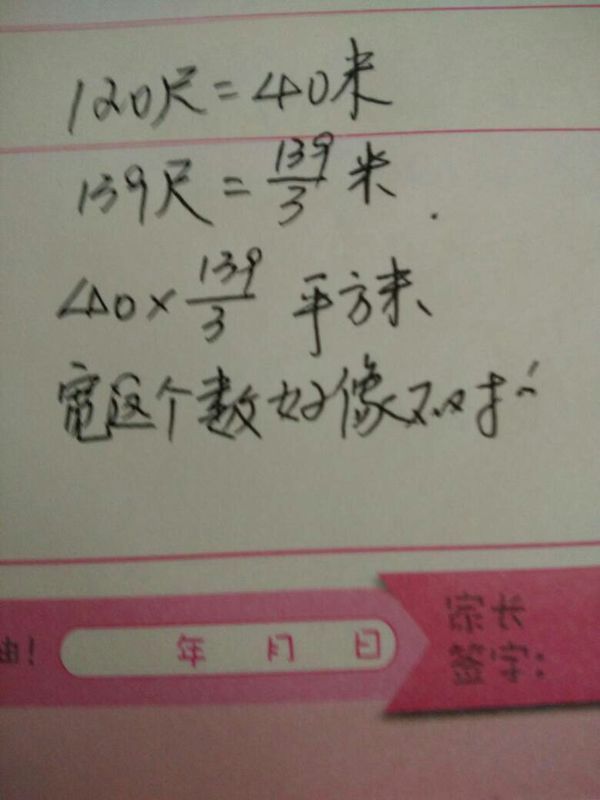 120尺=40米
139尺=139/3米.
40×139/3 平方米
宽这个数好像不对
油!
年 月 日
家长
签字: